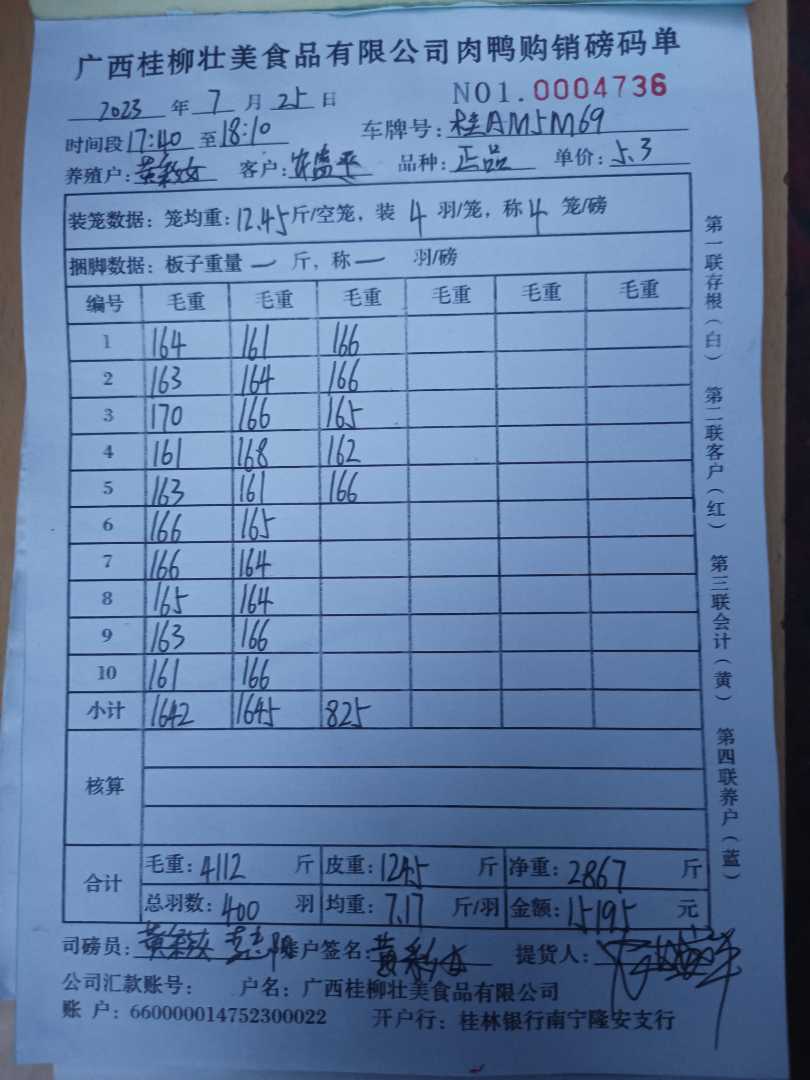 广西桂柳壮美食品有限公司肉鸭购销磅码单
2023 年 7 月 25 日 NO1.0004736
时间段17:40 至18:10 车牌号：桂AM5M69
养殖户： 客户： 品种：正品 单价：5.3
装笼数据：笼均重：12.45斤/空笼，装 4 羽/笼，称 4 笼/磅
捆脚数据：板子重量 — 斤，称 — 羽/磅
编号 毛重 毛重 毛重 毛重 毛重 毛重
1 164 161 166
2 163 164 166
3 170 166 165
4 161 168 162
5 163 161 166
6 166 165
7 166 164
8 165 164
9 163 166
10 161 166
小计 1642 1645 825
核算
合计
毛重：4112 斤 皮重：1245 斤 净重：2867 斤
总羽数：400 羽 均重：7.17 斤/羽 金额：15195 元
司磅员： 养户签名： 提货人：
公司汇款账号： 户名：广西桂柳壮美食品有限公司
账 户：660000014752300022 开户行：桂林银行南宁隆安支行
第一联存根（白） 第二联客户（红） 第三联会计（黄） 第四联养户（蓝）